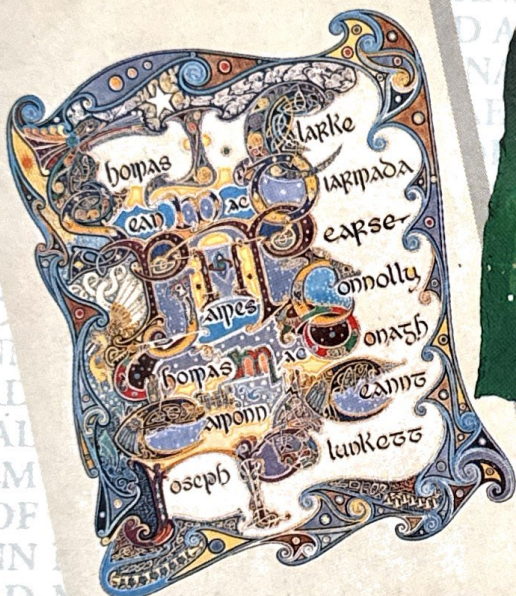 Thomas Clarke
Sean Mac Diarmada
P H Pearse
James Connolly
Thomas Mac Donagh
Eamonn Ceannt
Joseph Plunkett